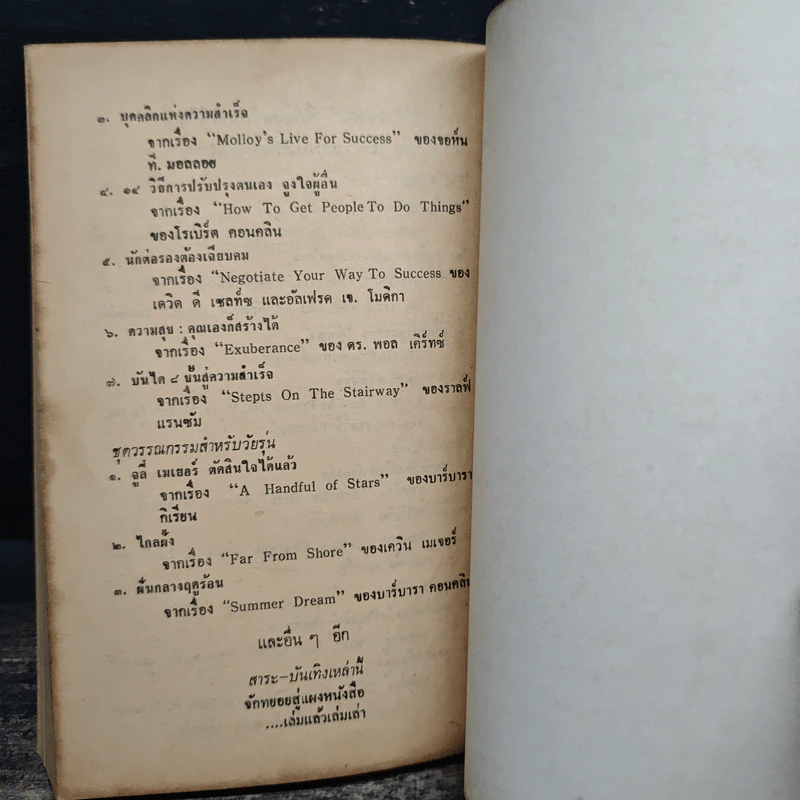 ๓. บุคคลิกแห่งความสำเร็จ
จากเรื่อง "Molloy's Live For Success" ของจอห์น
ที. มอลลอย
๔. ๑๔ วิธีการปรับปรุงตนเอง จูงใจผู้อื่น
จากเรื่อง "How To Get People To Do Things"
ของโรเบิร์ต คอนคลิน
๕. นักต่อรองต้องเฉียบคม
จากเรื่อง "Negotiate Your Way To Success ของ
เดวิด ดี เซลท์ซ และอัลเฟรด เจ. โมดิกา
๖. ความสุข : คุณเองก็สร้างได้
จากเรื่อง "Exuberance" ของ ดร. พอล เคิร์ทซ์
๗. บันได ๘ ขั้นสู่ความสำเร็จ
จากเรื่อง "Stepts On The Stairway" ของราล์ฟ
แรนซัม
ชุดวรรณกรรมสำหรับวัยรุ่น
๑. จูลี่ เมเยอร์ ตัดสินใจได้แล้ว
จากเรื่อง "A Handful of Stars" ของบาร์บารา
กิเรียน
๒. ไกลฝั่ง
จากเรื่อง "Far From Shore" ของเควิน เมเจอร์
๓. ฝันกลางฤดูร้อน
จากเรื่อง "Summer Dream" ของบาร์บารา คอนคลิน
และอื่น ๆ อีก
สาระ-บันเทิงเหล่านี้
จักทยอยสู่แผงหนังสือ
....เล่มแล้วเล่มเล่า